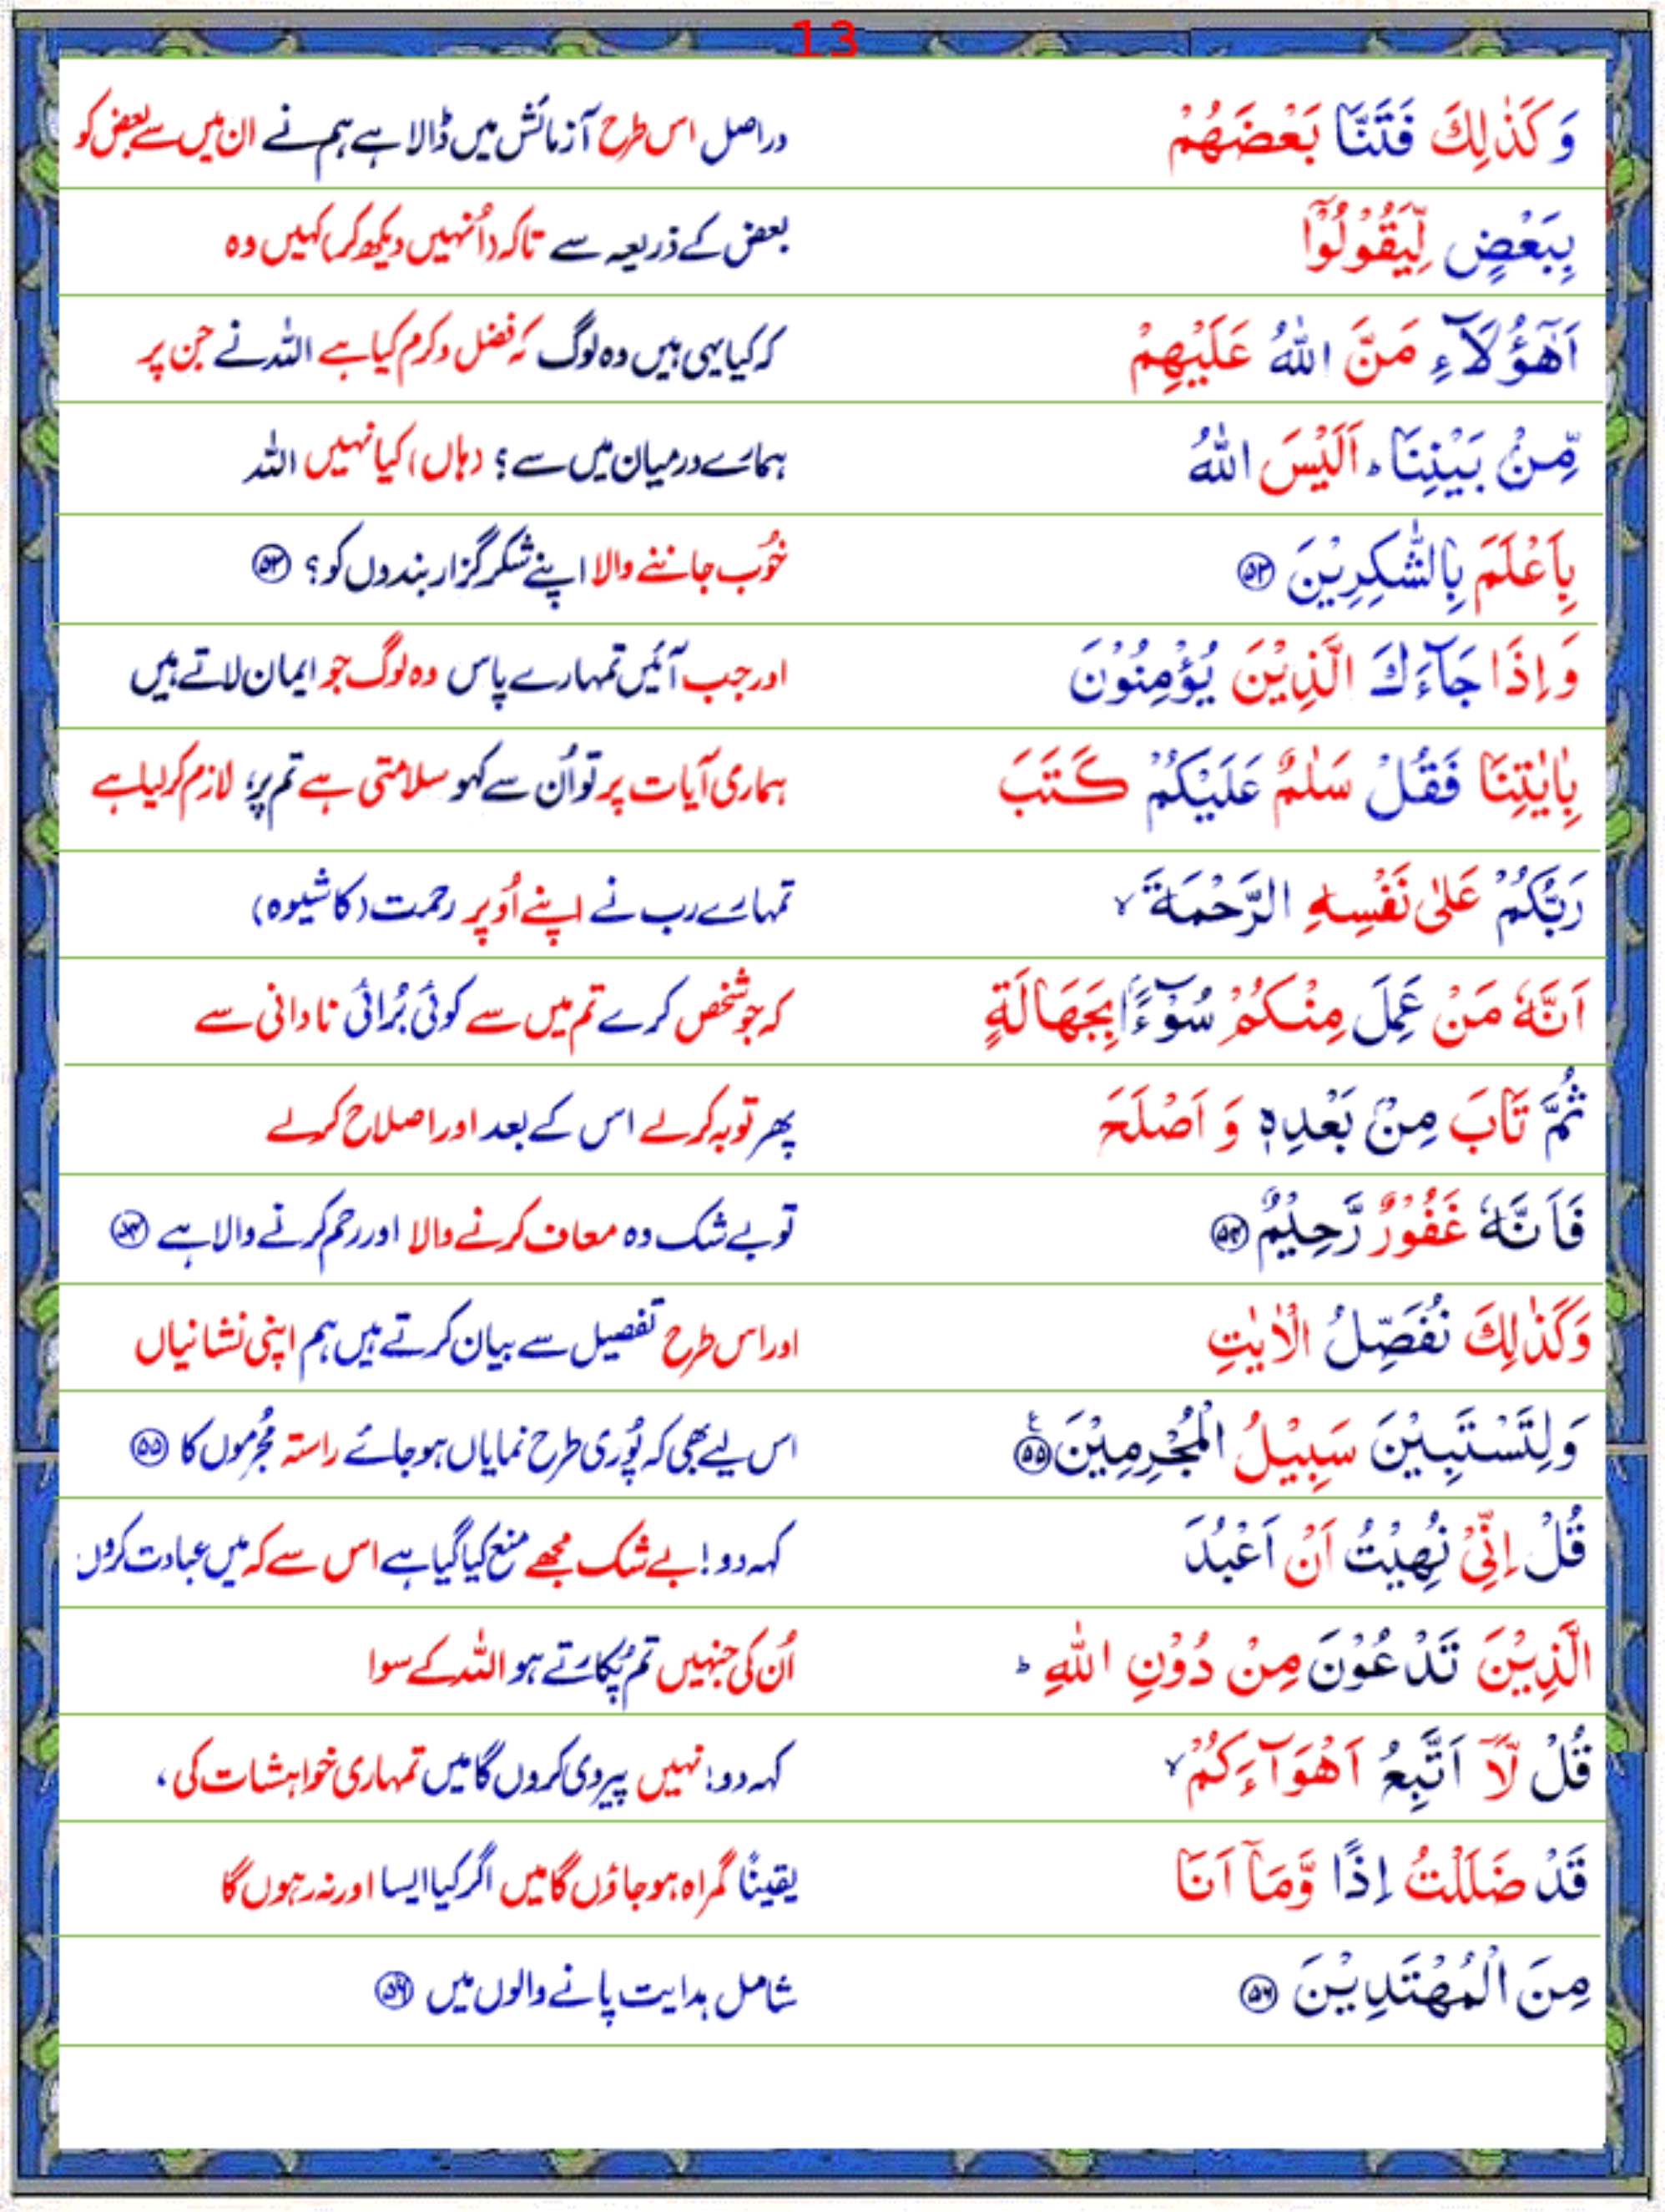 13
وَكَذٰلِكَ فَتَنَّا بَعْضَهُمْ دراصل اس طرح آزمائش میں ڈالا ہے ہم نے ان میں سے بعض کو
بِبَعْضٍ لِّيَقُوْلُوْٓا بعض کے ذریعہ سے تاکہ (اُنہیں دیکھ کر) کہیں وہ
اَهٰٓؤُلَآءِ مَنَّ اللّٰهُ عَلَيْهِمْ کہ کیا یہی ہیں وہ لوگ کہ فضل و کرم کیا ہے اللہ نے جن پر
مِّنْۢ بَيْنِنَا ؕ اَلَيْسَ اللّٰهُ ہمارے درمیان میں سے؟ (ہاں) کیا نہیں اللہ
بِاَعْلَمَ بِالشّٰكِرِيْنَ ﴿۵۳﴾ خُوب جاننے والا اپنے شکر گزار بندوں کو؟ ﴿۵۳﴾
وَاِذَا جَآءَكَ الَّذِيْنَ يُؤْمِنُوْنَ اور جب آئیں تمہارے پاس وہ لوگ جو ایمان لاتے ہیں
بِاٰيٰتِنَا فَقُلْ سَلٰمٌ عَلَيْكُمْ كَتَبَ ہماری آیات پر تو اُن سے کہو سلامتی ہے تم پر، لازم کرلیا ہے
رَبُّكُمْ عَلٰى نَفْسِهِ الرَّحْمَةَ ۙ تمہارے رب نے اپنے اُوپر رحمت (کا شیوہ)
اَنَّهٗ مَنْ عَمِلَ مِنْكُمْ سُوْٓءًۢا بِجَهَالَةٍ کہ جو شخص کرے تم میں سے کوئی بُرائی نادانی سے
ثُمَّ تَابَ مِنْۢ بَعْدِهٖ وَ اَصْلَحَ پھر توبہ کرلے اس کے بعد اور اصلاح کرلے
فَاَنَّهٗ غَفُوْرٌ رَّحِيْمٌ ﴿۵۴﴾ تو بے شک وہ معاف کرنے والا اور رحم کرنے والا ہے ﴿۵۴﴾
وَكَذٰلِكَ نُفَصِّلُ الْاٰيٰتِ اور اس طرح تفصیل سے بیان کرتے ہیں ہم اپنی نشانیاں
وَلِتَسْتَبِيْنَ سَبِيْلُ الْمُجْرِمِيْنَ ﴿۵۵﴾ اس لیے بھی کہ پُوری طرح نمایاں ہوجائے راستہ مُجرموں کا ﴿۵۵﴾
قُلْ اِنِّىْ نُهِيْتُ اَنْ اَعْبُدَ کہہ دو! بے شک مجھے منع کیا گیا ہے اس سے کہ میں عبادت کروں
الَّذِيْنَ تَدْعُوْنَ مِنْ دُوْنِ اللّٰهِ ؕ اُن کی جنہیں تم پُکارتے ہو اللہ کے سوا
قُلْ لَّاۤ اَتَّبِعُ اَهْوَآءَكُمْ ۙ کہہ دو! نہیں پیروی کروں گا میں تمہاری خواہشات کی،
قَدْ ضَلَلْتُ اِذًا وَّمَاۤ اَنَا یقینًا گمراہ ہوجاؤں گا میں اگر کیا ایسا اور نہ رہوں گا
مِنَ الْمُهْتَدِيْنَ ﴿۵۶﴾ شامل ہدایت پانے والوں میں ﴿۵۶﴾